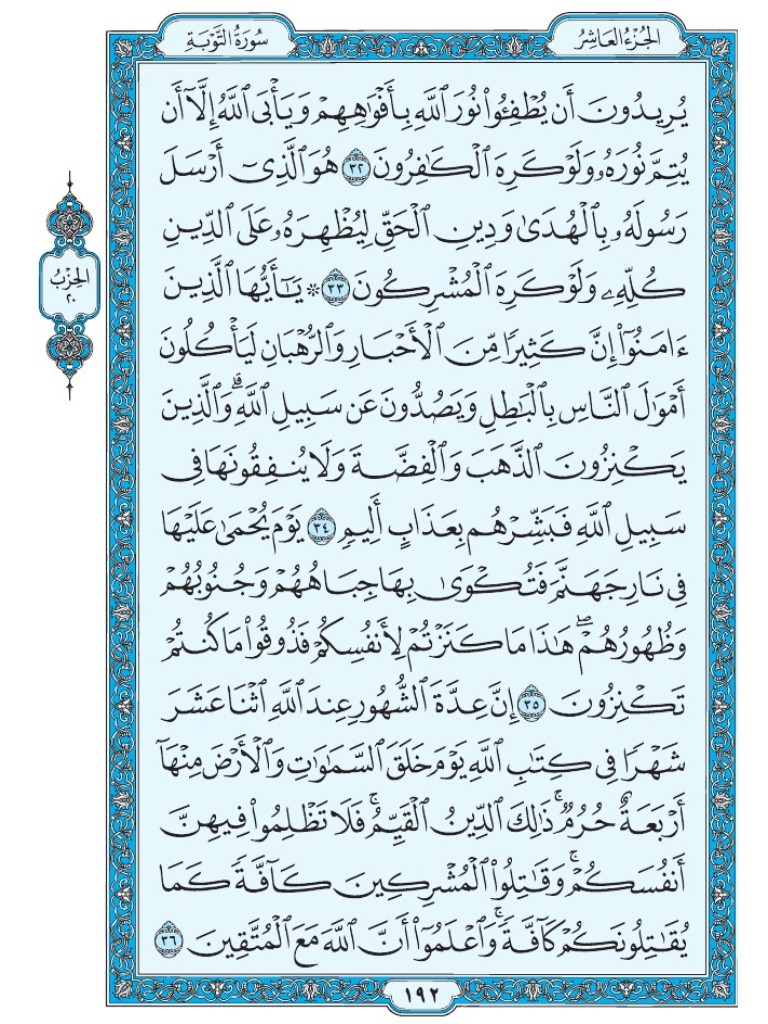 الجُزْءُ العَاشِرُ
سُورَةُ التَّوْبَةِ
يُرِيدُونَ أَن يُطْفِـُٔوا۟ نُورَ ٱللَّهِ بِأَفْوَٰهِهِمْ وَيَأْبَى ٱللَّهُ إِلَّآ أَن
يُتِمَّ نُورَهُۥ وَلَوْ كَرِهَ ٱلْكَٰفِرُونَ ٣٢ هُوَ ٱلَّذِىٓ أَرْسَلَ
رَسُولَهُۥ بِٱلْهُدَىٰ وَدِينِ ٱلْحَقِّ لِيُظْهِرَهُۥ عَلَى ٱلدِّينِ
كُلِّهِۦ وَلَوْ كَرِهَ ٱلْمُشْرِكُونَ ٣٣ ۞ يَٰٓأَيُّهَا ٱلَّذِينَ
ءَامَنُوٓا۟ إِنَّ كَثِيرًا مِّنَ ٱلْأَحْبَارِ وَٱلرُّهْبَانِ لَيَأْكُلُونَ
أَمْوَٰلَ ٱلنَّاسِ بِٱلْبَٰطِلِ وَيَصُدُّونَ عَن سَبِيلِ ٱللَّهِ ۗ وَٱلَّذِينَ
يَكْنِزُونَ ٱلذَّهَبَ وَٱلْفِضَّةَ وَلَا يُنفِقُونَهَا فِى
سَبِيلِ ٱللَّهِ فَبَشِّرْهُم بِعَذَابٍ أَلِيمٍ ٣٤ يَوْمَ يُحْمَىٰ عَلَيْهَا
فِى نَارِ جَهَنَّمَ فَتُكْوَىٰ بِهَا جِبَاهُهُمْ وَجُنُوبُهُمْ
وَظُهُورُهُمْ ۖ هَٰذَا مَا كَنَزْتُمْ لِأَنفُسِكُمْ فَذُوقُوا۟ مَا كُنتُمْ
تَكْنِزُونَ ٣٥ إِنَّ عِدَّةَ ٱلشُّهُورِ عِندَ ٱللَّهِ ٱثْنَا عَشَرَ
شَهْرًا فِى كِتَٰبِ ٱللَّهِ يَوْمَ خَلَقَ ٱلسَّمَٰوَٰتِ وَٱلْأَرْضَ مِنْهَآ
أَرْبَعَةٌ حُرُمٌ ۚ ذَٰلِكَ ٱلدِّينُ ٱلْقَيِّمُ ۚ فَلَا تَظْلِمُوا۟ فِيهِنَّ
أَنفُسَكُمْ ۚ وَقَٰتِلُوا۟ ٱلْمُشْرِكِينَ كَآفَّةً كَمَا
يُقَٰتِلُونَكُمْ كَآفَّةً ۚ وَٱعْلَمُوٓا۟ أَنَّ ٱللَّهَ مَعَ ٱلْمُتَّقِينَ ٣٦
الحِزْبُ
٢٠
١٩٢